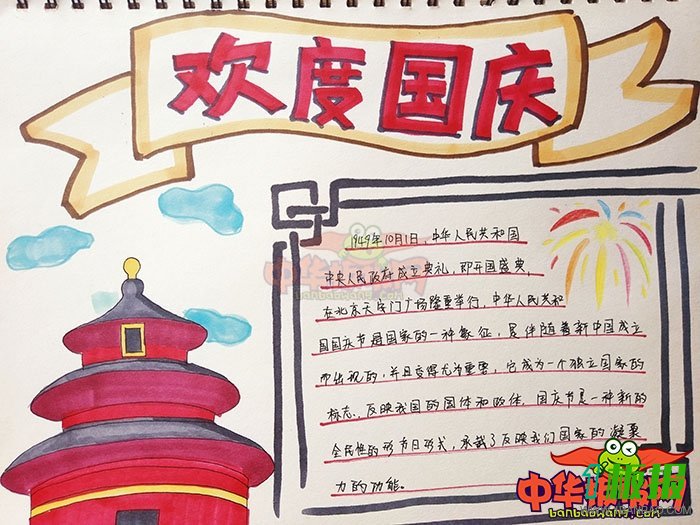 欢度国庆
1949年10月1日，中华人民共和国
中央人民政府成立典礼，即开国盛典，
在北京天安门广场隆重举行，中华人民共和
国国庆节是国家的一种象征，是伴随着新中国成立
而出现的，并且变得尤为重要，它成为一个独立国家的
标志，反映我国的国体和政体，国庆节是一种新的
全民性的形节日形式，承载了反映我们国家的凝聚
力的功能。
banbaowang.com
banbaowang.com